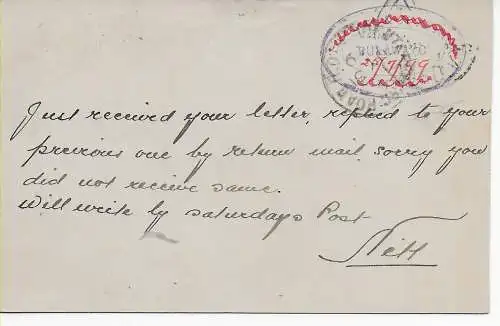 29/7/99
Just received your letter, replied to your
previous one by return mail, sorry you
did not receive same.
Will write by saturdays Post
Nell